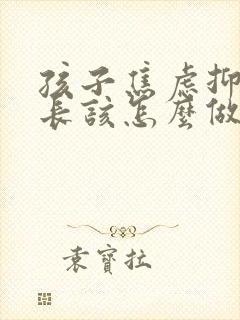 孩子焦虑抑
长该怎麼做
袁寶拉